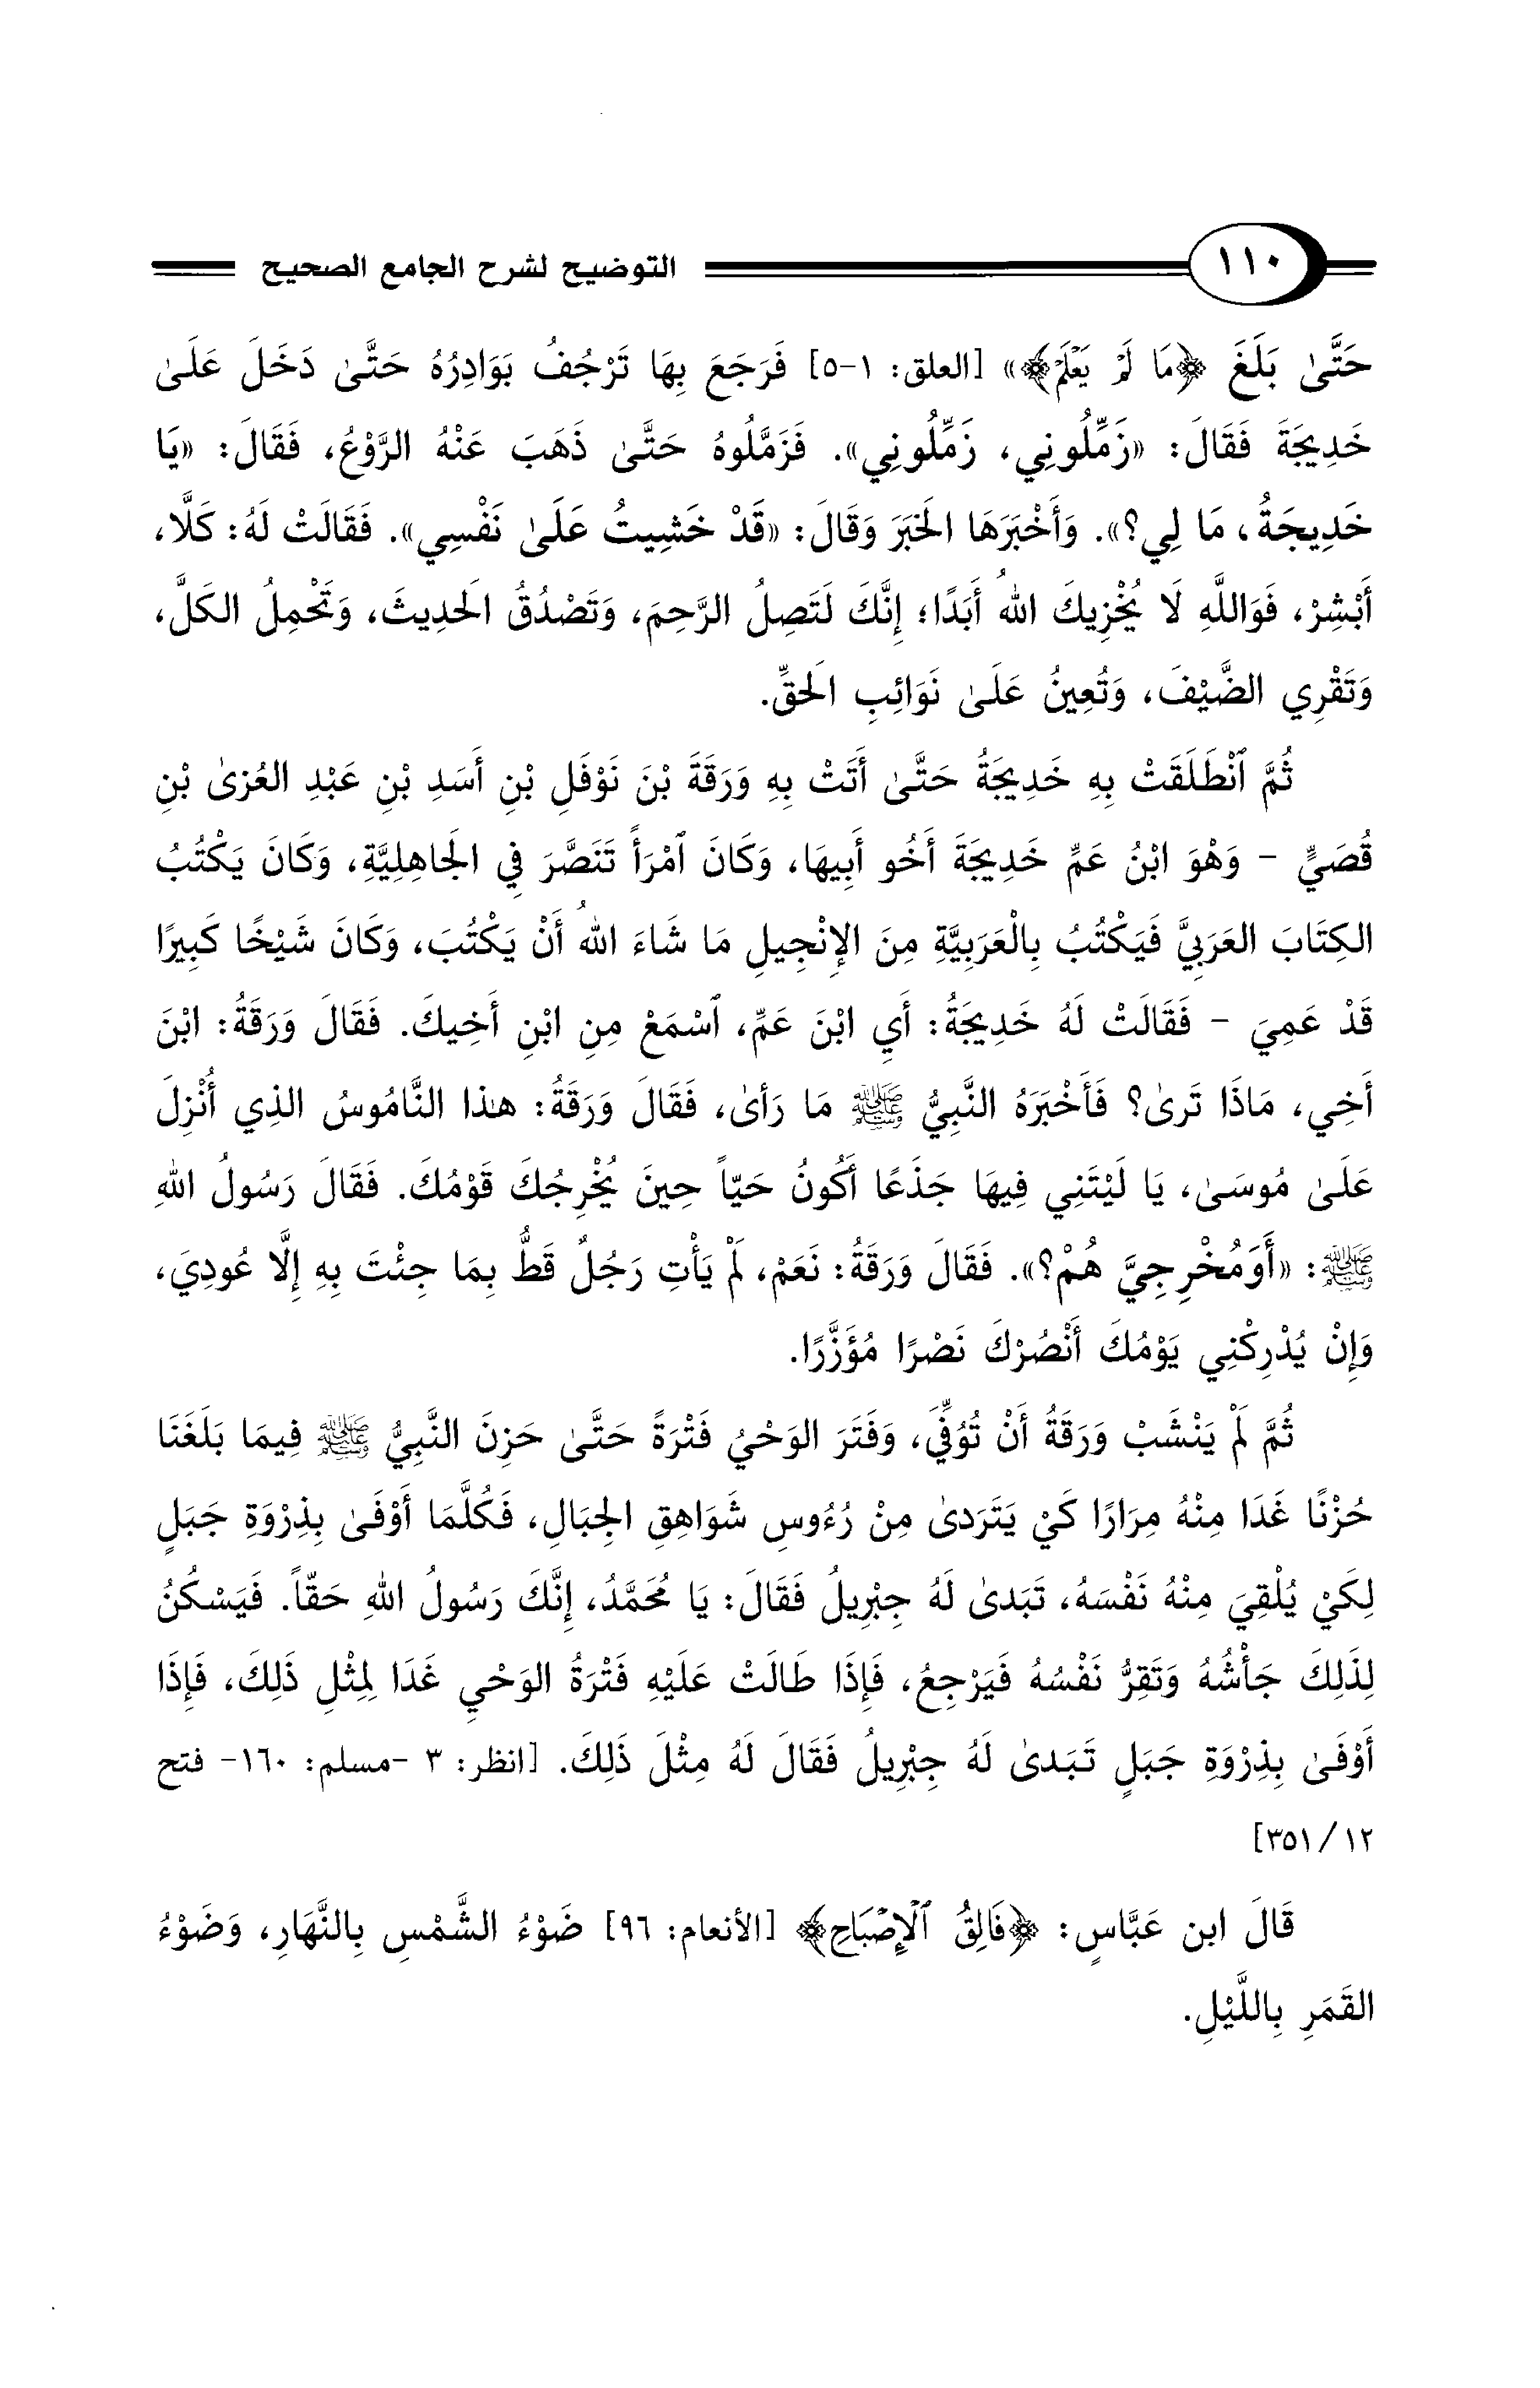 ١١٠ التوضيح لشرح الجامع الصحيح
حَتَّىٰ بَلَغَ ﴿مَا لَمْ يَعْلَمْ﴾» [العلق: ١-٥] فَرَجَعَ بِهَا تَرْجُفُ بَوَادِرُهُ حَتَّىٰ دَخَلَ عَلَىٰ
خَدِيجَةَ فَقَالَ: «زَمِّلُونِي، زَمِّلُونِي». فَزَمَّلُوهُ حَتَّىٰ ذَهَبَ عَنْهُ الرَّوْعُ، فَقَالَ: «يَا
خَدِيجَةُ، مَا لِي؟». وَأَخْبَرَهَا الَخَبَرَ وَقَالَ: «قَدْ خَشِيتُ عَلَىٰ نَفْسِي». فَقَالَتْ لَهُ: كَلَّا،
أَبْشِرْ، فَوَاللَّهِ لَا يُخْزِيكَ اللهُ أَبَدًا؛ إِنَّكَ لَتَصِلُ الرَّحِمَ، وَتَصْدُقُ الَحدِيثَ، وَتَحْمِلُ الكَلَّ،
وَتَقْرِي الضَّيْفَ، وَتُعِينُ عَلَىٰ نَوَائِبِ الَحقِّ.
ثُمَّ ٱنْطَلَقَتْ بِهِ خَدِيجَةُ حَتَّىٰ أَتَتْ بِهِ وَرَقَةَ بْنَ نَوْفَلِ بْنِ أَسَدِ بْنِ عَبْدِ العُزىٰ بْنِ
قُصَيٍّ - وَهْوَ ابْنُ عَمِّ خَدِيجَةَ أَخُو أَبِيهَا، وَكَانَ ٱمْرَأً تَنَصَّرَ فِي الَجاهِلِيَّةِ، وَكَانَ يَكْتُبُ
الكِتَابَ العَرَبِيَّ فَيَكْتُبُ بِالْعَرَبِيَّةِ مِنَ الإِنْجِيلِ مَا شَاءَ اللهُ أَنْ يَكْتُبَ، وَكَانَ شَيْخًا كَبِيرًا
قَدْ عَمِيَ - فَقَالَتْ لَهُ خَدِيجَةُ: أَيِ ابْنَ عَمِّ، ٱسْمَعْ مِنِ ابْنِ أَخِيكَ. فَقَالَ وَرَقَةُ: ابْنَ
أَخِي، مَاذَا تَرىٰ؟ فَأَخْبَرَهُ النَّبِيُّ ﷺ مَا رَأىٰ، فَقَالَ وَرَقَةُ: هٰذا النَّامُوسُ الذِي أُنْزِلَ
عَلَىٰ مُوسَىٰ، يَا لَيْتَنِي فِيهَا جَذَعًا أَكُونُ حَيّاً حِينَ يُخْرِجُكَ قَوْمُكَ. فَقَالَ رَسُولُ اللهِ
ﷺ: «أَوَمُخْرِجِيَّ هُمْ؟». فَقَالَ وَرَقَةُ: نَعَمْ، لَمْ يَأْتِ رَجُلٌ قَطُّ بِمَا جِئْتَ بِهِ إِلَّا عُودِيَ،
وَإِنْ يُدْرِكْنِي يَوْمُكَ أَنْصُرْكَ نَصْرًا مُؤَزَّرًا.
ثُمَّ لَمْ يَنْشَبْ وَرَقَةُ أَنْ تُوُفِّيَ، وَفَتَرَ الوَحْيُ فَتْرَةً حَتَّىٰ حَزِنَ النَّبِيُّ ﷺ فِيمَا بَلَغَنَا
حُزْنًا غَدَا مِنْهُ مِرَارًا كَيْ يَتَرَدىٰ مِنْ رُءُوسِ شَوَاهِقِ الِجبَالِ، فَكُلَّمَا أَوْفَىٰ بِذِرْوَةِ جَبَلٍ
لِكَيْ يُلْقِيَ مِنْهُ نَفْسَهُ، تَبَدىٰ لَهُ جِبْرِيلُ فَقَالَ: يَا مُحَمَّدُ، إِنَّكَ رَسُولُ اللهِ حَقّاً. فَيَسْكُنُ
لِذَلِكَ جَأْشُهُ وَتَقِرُّ نَفْسُهُ فَيَرْجِعُ، فَإِذَا طَالَتْ عَلَيْهِ فَتْرَةُ الوَحْيِ غَدَا لِمِثْلِ ذَلِكَ، فَإِذَا
أَوْفَىٰ بِذِرْوَةِ جَبَلٍ تَبَدىٰ لَهُ جِبْرِيلُ فَقَالَ لَهُ مِثْلَ ذَلِكَ. [انظر: ٣ -مسلم: ١٦٠- فتح
١٢/ ٣٥١]
قَالَ ابن عَبَّاسٍ: ﴿فَالِقُ ٱلْإِصْبَاحِ﴾ [الأنعام: ٩٦] ضَوْءُ الشَّمْسِ بِالنَّهَارِ، وَضَوْءُ
القَمَرِ بِاللَّيْلِ.